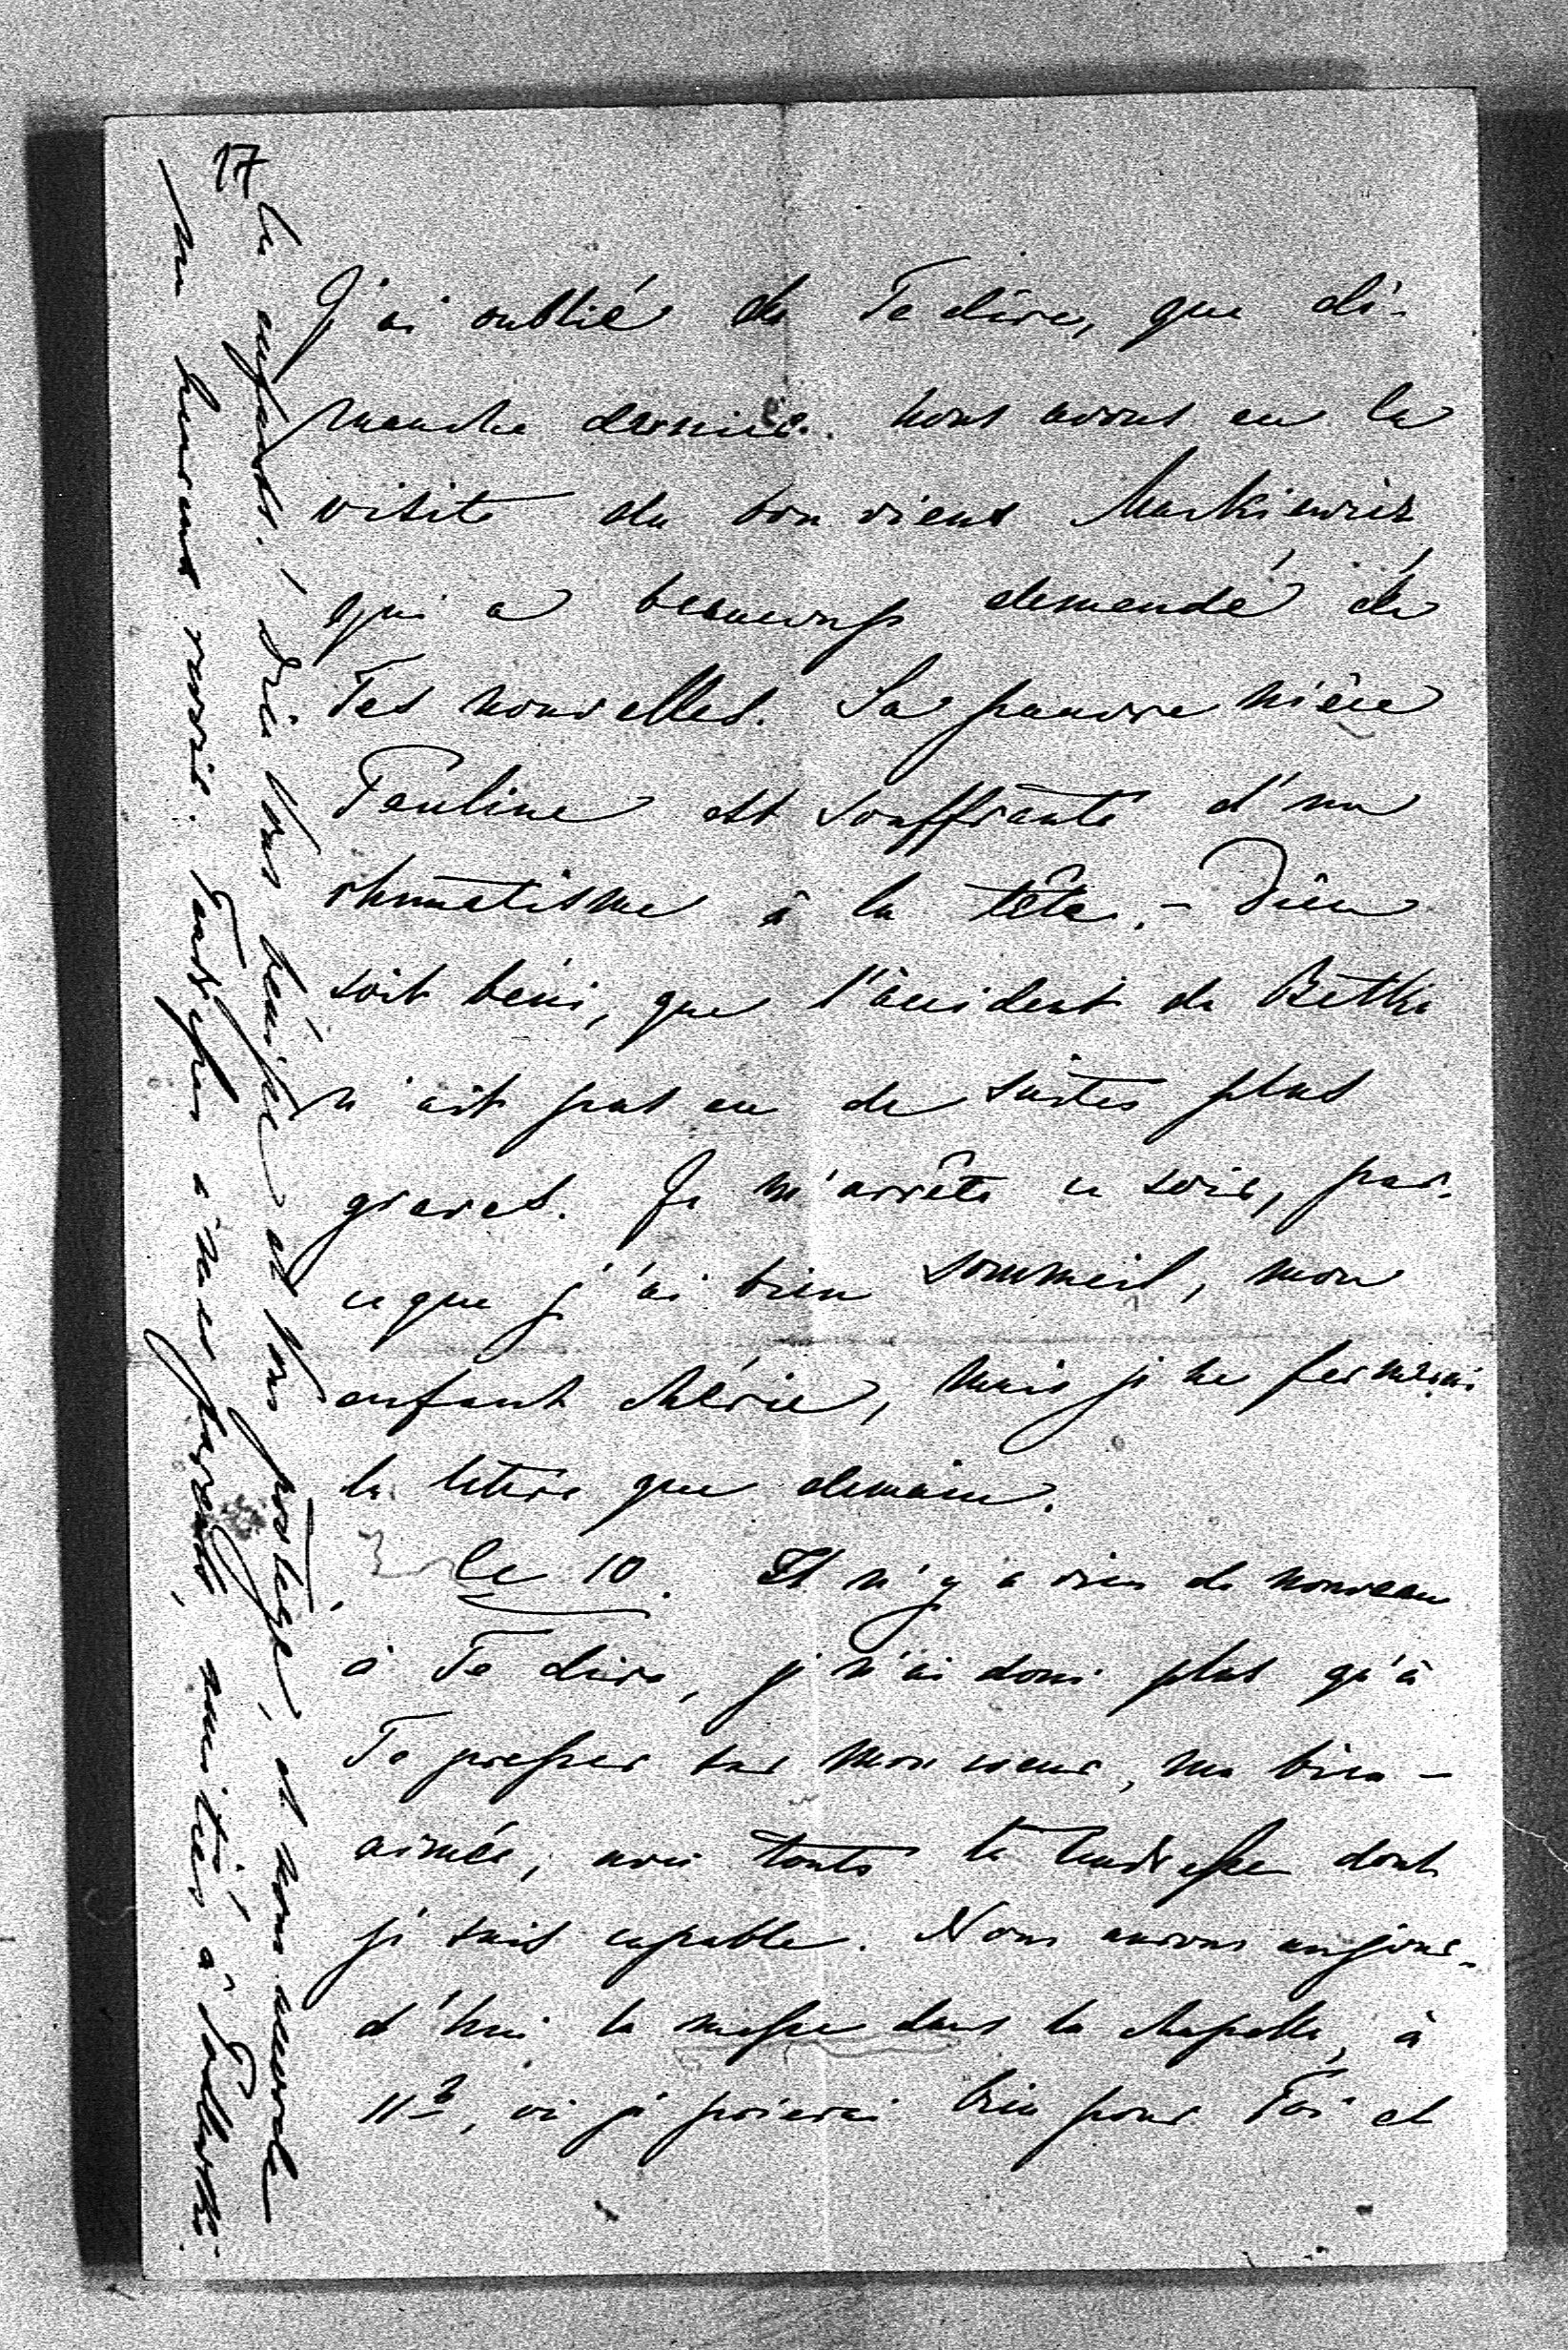 J'ai oublié de Te dire, que di-
manche dernier nous avons eu la
visite du bon vieux Markiewicz
qui a beaucoup demandé de
Tes nouvelles. Sa pauvre nièce
Pauline est souffrante d'un
rhumatisme à la tête. - Dieu
soit béni, que l'accident de Betka
n'ait pas eu de suites plus
graves. Je m'arrête ce soir, par-
ceque j'ai bien sommeil, mon
enfant chérie, mais je ne fermerai
la lettre que demain.
Le 10. Il n'y a rien de nouveau
à Te dire, je n'ai donc plus qu'à
Te presser sur mon coeur, ma bien-
aimée, avec toute la tendresse dont
je suis capable. Nous aurons aujour-
d'hui la messe dans la chapelle, à
11½, où je prierai bien pour Toi et
les enfants. Dieu vous bénisse et vous protège, et nous accorde
un heureux revoir. Tendresses à mes parents, amitiés à
17